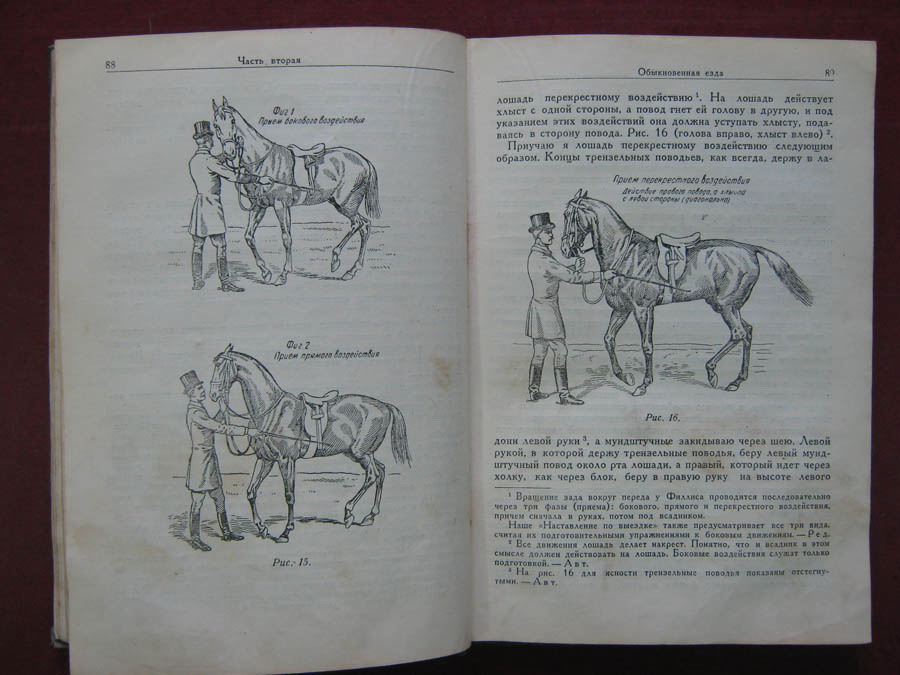 88
Часть вторая
Фиг 1
Прием бокового воздействия
Фиг. 2
Прием прямого воздействия
Рис. 15.
Обыкновенная езда
89
лошадь перекрестному воздействию¹. На лошадь действует
хлыст с одной стороны, а повод гнет ей голову в другую, и под
указанием этих воздействий она должна уступать хлысту, пода-
ваясь в сторону повода. Рис. 16 (голова вправо, хлыст влево)².
Приучаю я лошадь перекрестному воздействию следующим
образом. Концы трензельных поводьев, как всегда, держу в ла-
Прием перекрестного воздействия
Действие правого повода, а хлыста
с левой стороны (диагонально)
Рис. 16.
дони левой руки³, а мундштучные закидываю через шею. Левой
рукой, в которой держу трензельные поводья, беру левый мунд-
штучный повод около рта лошади, а правый, который идет через
холку, как через блок, беру в правую руку на высоте левого
¹ Вращение зада вокруг переда у Филлиса проводится последовательно
через три фазы (приема): бокового, прямого и перекрестного воздействия,
причем сначала в руках, потом под всадником.
Наше «Наставление по выездке» также предусматривает все три вида,
считая их подготовительными упражнениями к боковым движениям. — Ред.
² Все движения лошадь делает накрест. Понятно, что и всадник в этом
смысле должен действовать на лошадь. Боковые воздействия служат только
подготовкой. — Авт.
³ На рис. 16 для ясности трензельные поводья показаны отстегну-
тыми. — Авт.